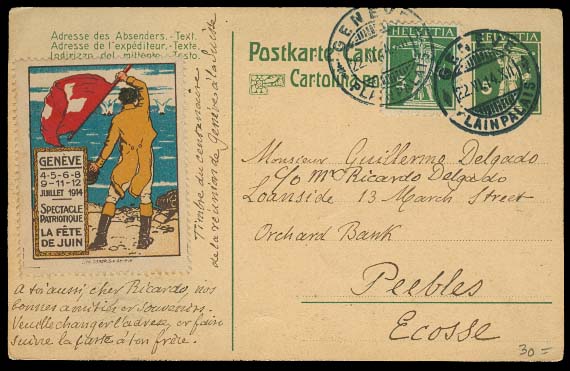 Adresse des Absenders. - Text.
Adresse de l'expéditeur. - Texte
Indirizzo del mittente. - Testo.
Postkarte Carte
Cartolina
HELVETIA
HELVETIA
GENÈVE
PLAINPALAIS
GENÈVE
22.VI.14.XII
PLAINPALAIS
GENÈVE
4-5-6-8
9-11-12
JUILLET 1914
SPECTACLE
PATRIOTIQUE
LA FÊTE
DE JUIN
Timbre du centenaire
de la réunion de Genève à la Suisse
Monsieur Guillermo Delgado
c/o Mc Ricardo Delgado
Loanside 13 March Street
Orchard Bank
Peebles
Ecosse
A toi aussi, cher Ricardo, nos
bonnes amitiés et souvenirs.
Veuille changer l'adresse, et faire
suivre la carte à ton frère.
30=